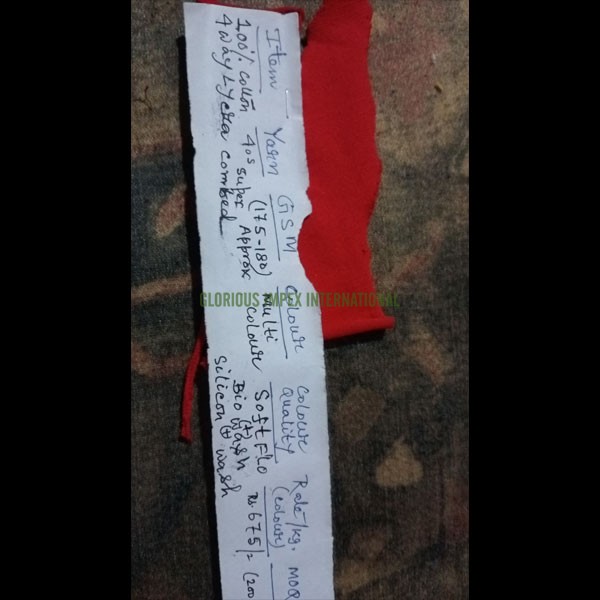 Item Yarn GSM Colour Colour Rate/kg. MOQ
Quality (colour)
100% Cotton 40s (175-180) multi Soft flo Rs 675/= (200
4 way Lycra combed super Approx colour (+)
Bio wash
(+)
Silicon wash
GLORIOUS IMPEX INTERNATIONAL